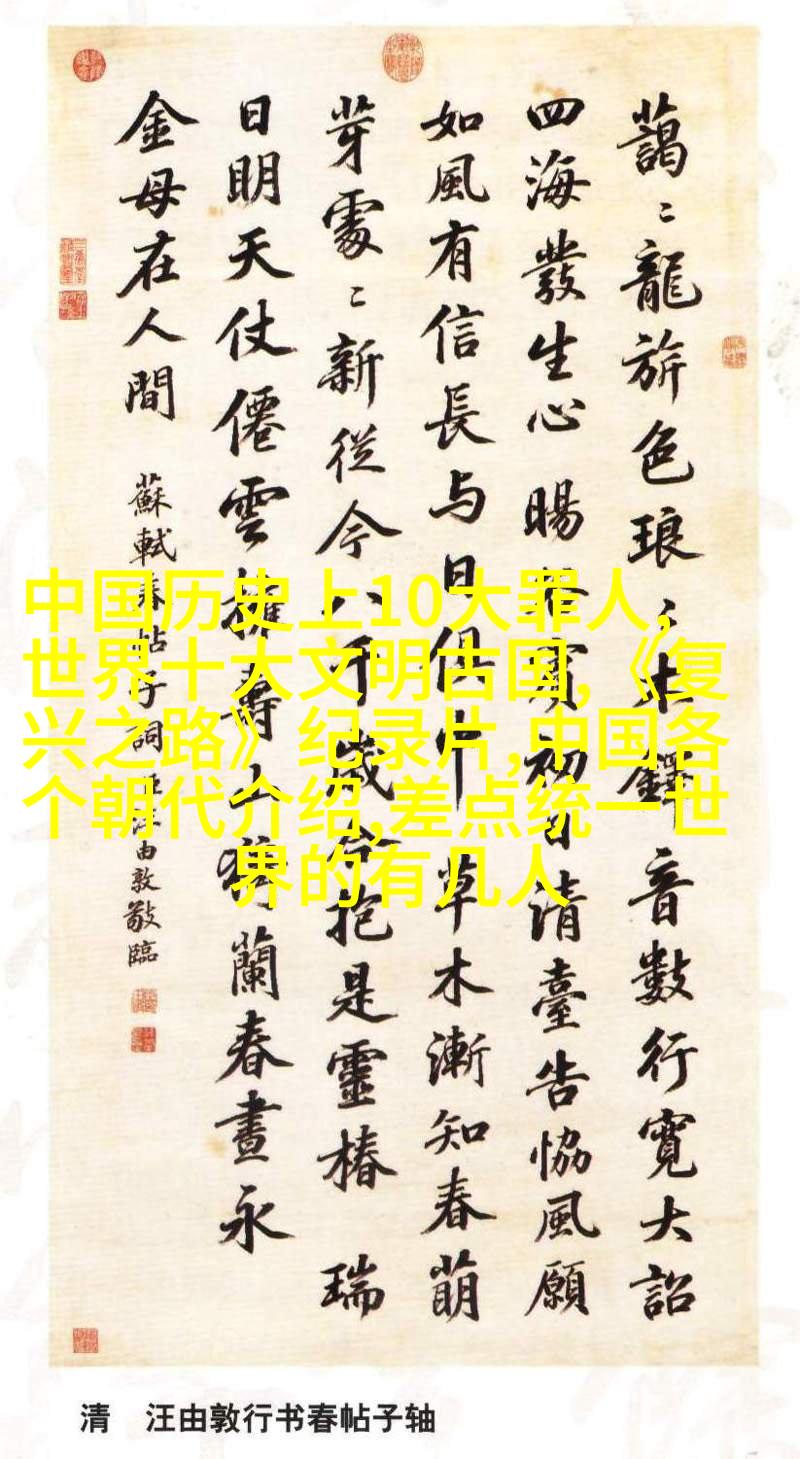 藹〻龍旂色琅〻木鐸音數行寬大詔
四海發生心暘谷賓初日清臺告協風願
如風有信長与日俱中草木漸知春萌
芽處〻新從今八千歲合抱是靈椿瑞
日明天仗僊雲擁壽山猗蘭春晝永
金母在人間
蘇軾春帖子詞 臣汪由敦敬臨
中国历史上10大罪人,
世界十大文明古国,《复
兴之路》纪录片,中国各
个朝代介绍,差点统一世
界的有几人
清 汪由敦行书春帖子轴